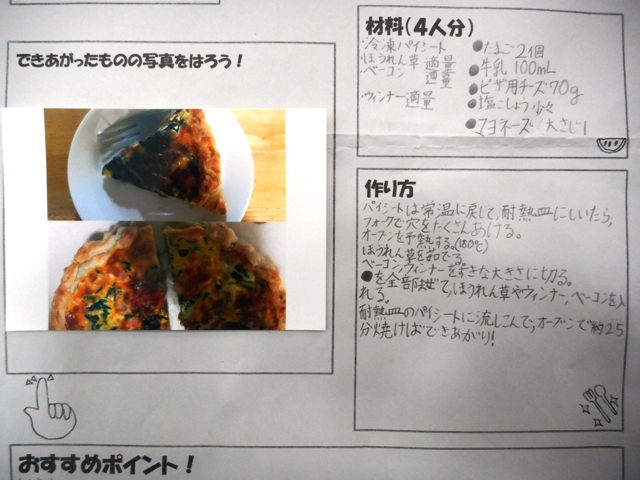 できあがったものの写真をはろう!
材料(4人分)
冷凍パイシート
ほうれん草 適量
ベーコン 適量
ウィンナー適量
●たまご2個
●牛乳 100mL
●ピザ用チーズ70g
●塩こしょう少々
●マヨネーズ 大さじ1
作り方
パイシートは常温に戻して、耐熱皿にしいたら、
フォークで穴をたくさんあける。
オーブンを予熱する。(180℃)
ほうれん草を茹でる
ベーコン、ウィンナーを好きな大きさに切る。
●を全部混ぜて、ほうれん草やウィンナー、ベーコンを入
れる。
耐熱皿のパイシートに流しこんで、オーブンで約25
分焼けばできあがり!
おすすめポイント!